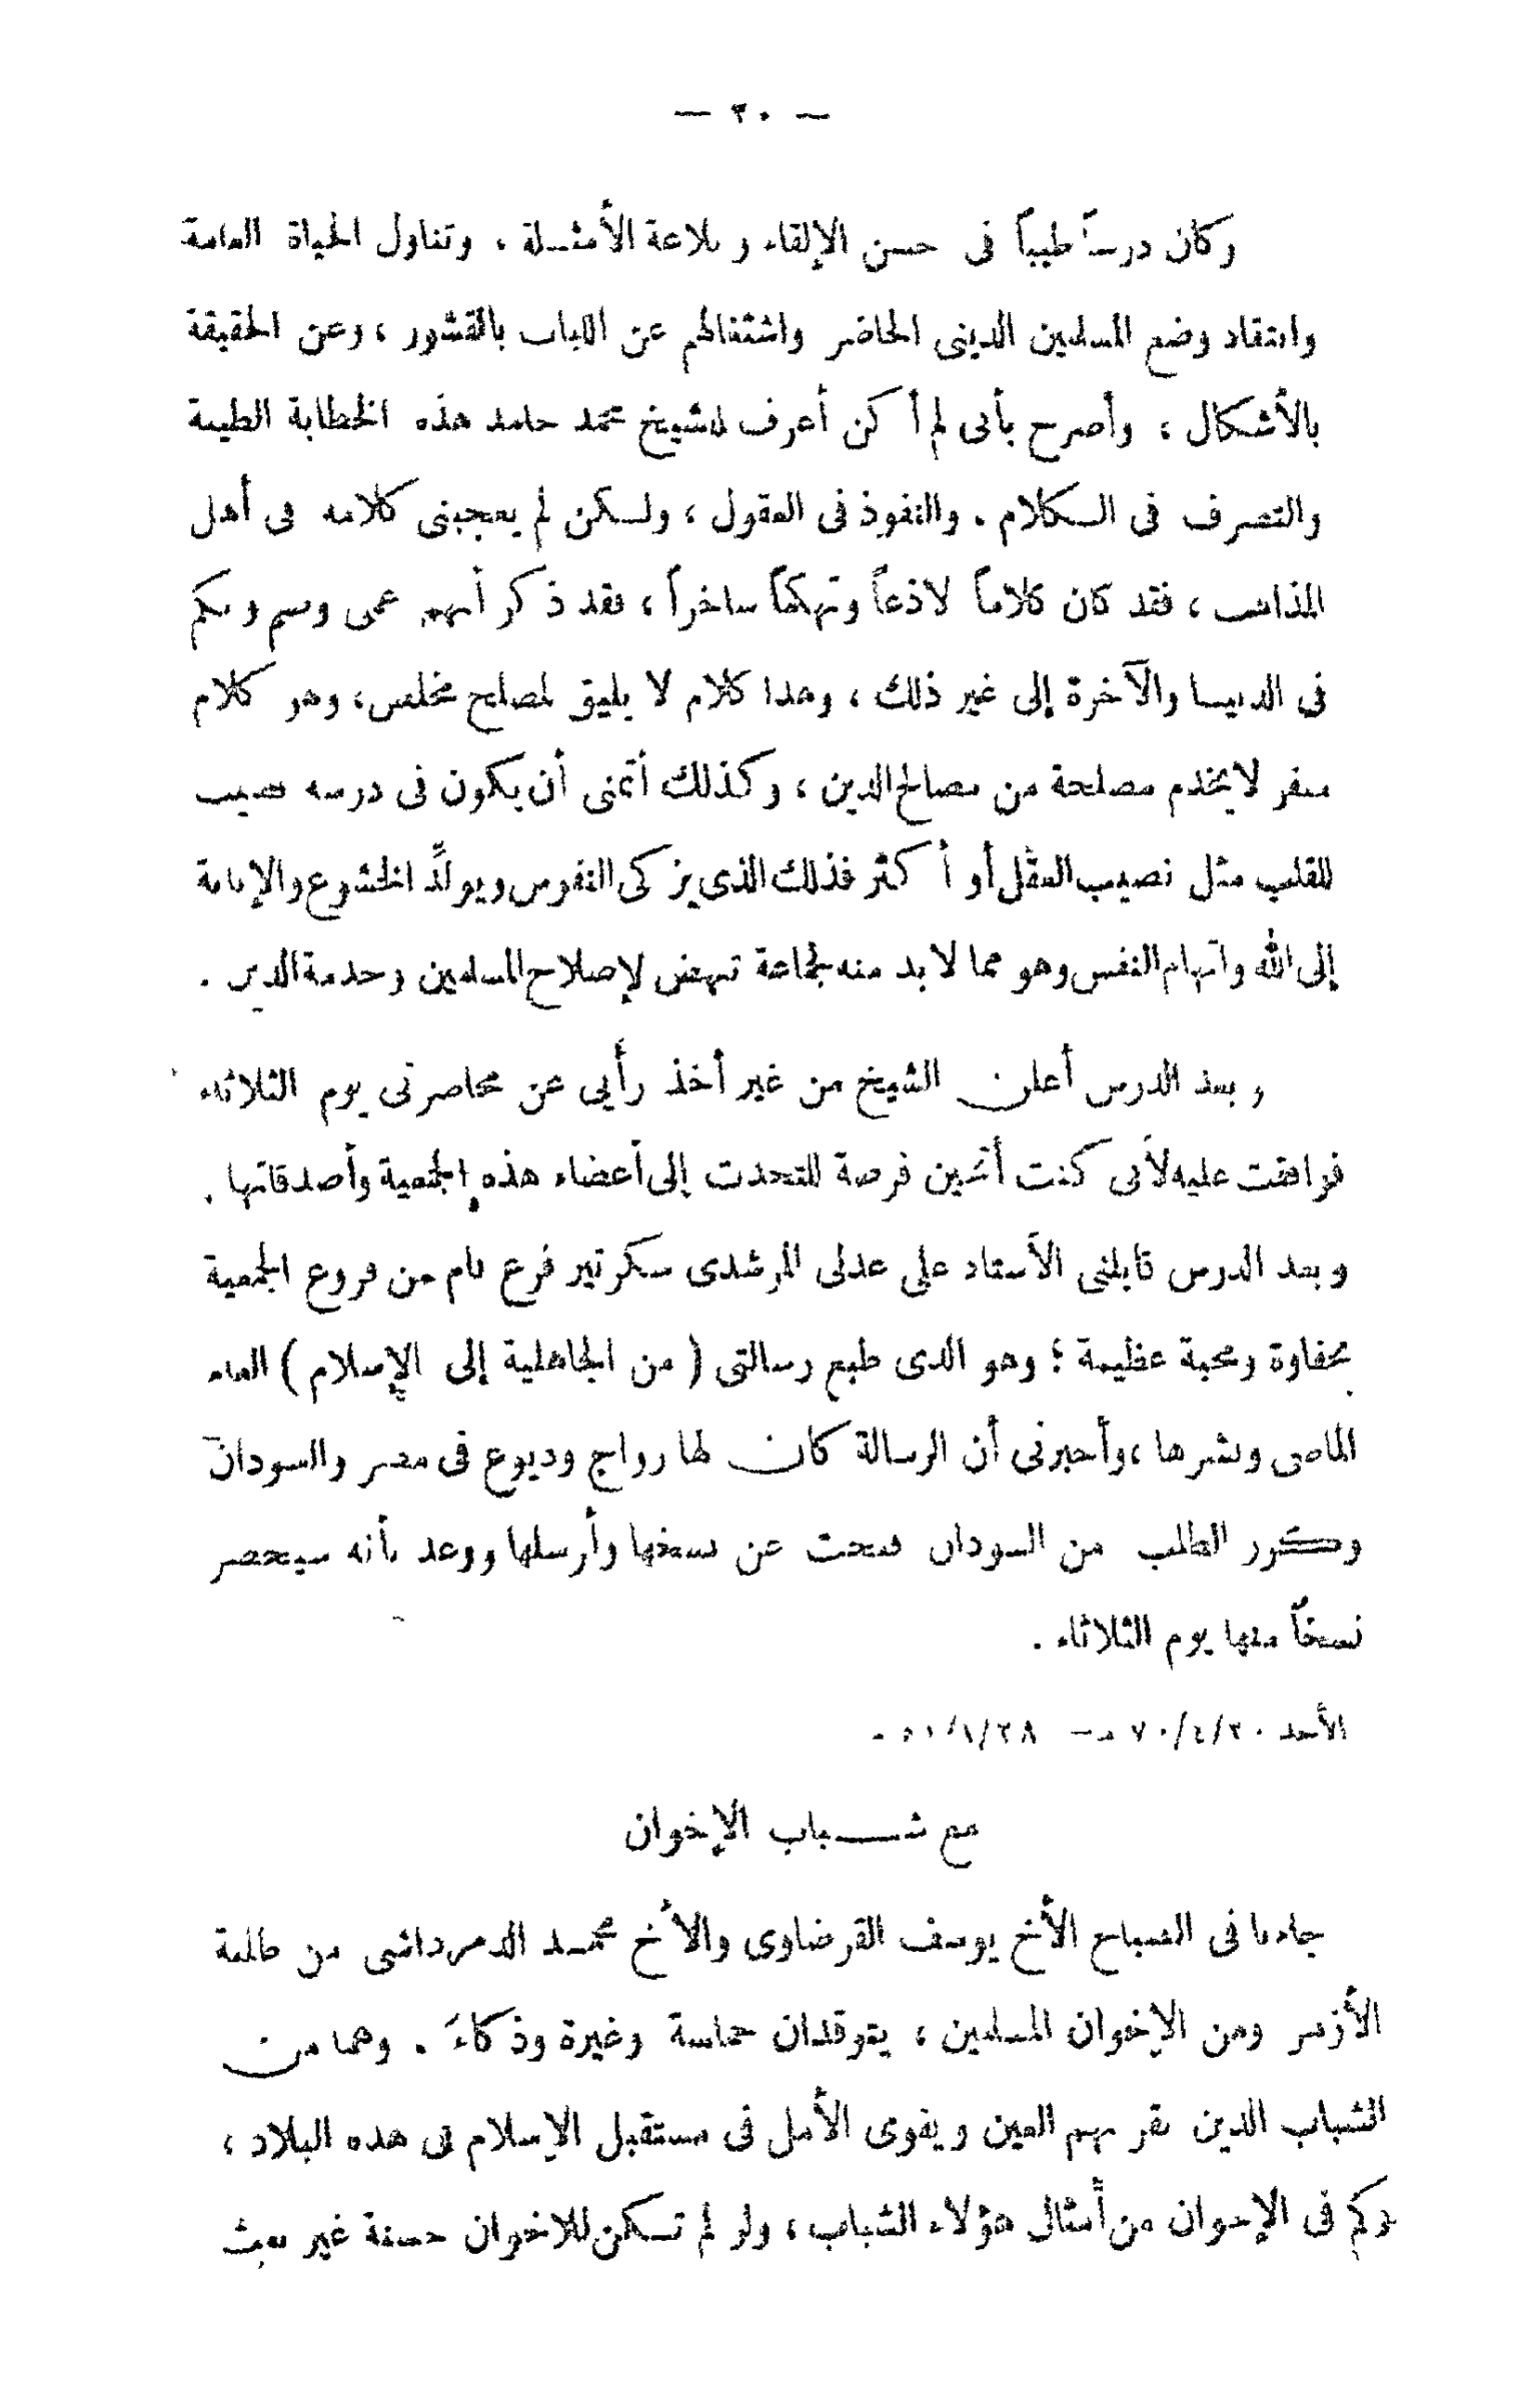 — ٣٠ —
وكان درساً طيباً فى حسن الإلقاء و بلاغة الأمثـلة ، وتناول الحياة العامة
وانتقاد وضع المسلمين الدينى الحاضر واشتغالهم عن اللباب بالقشور ، وعن الحقيقة
بالأشكال ، وأصرح بأنى لم أكن أعرف للشيخ محمد حامد هذه الخطابة الطيبة
والتصرف فى الـكلام . والنفوذ فى العقول ، ولـكن لم يعجبنى كلامه فى أهل
المذاهب ، فقد كان كلاماً لاذعاً وتهكماً ساخراً ، فقد ذكر أنهم عمى وصم وبكم
فى الدنيـا والآخرة إلى غير ذلك ، وهذا كلام لا يليق لمصلح مخلص، وهو كلام
منفر لا يخدم مصلحة من مصالح الدين ، وكذلك أتمنى أن يكون فى درسه نصيب
للقلب مثل نصيب العقل أو أكثر فذلك الذى يزكى النفوس ويولّد الخشوع والإنابة
إلى الله واتهام النفس وهو مما لا بد منه لجماعة تنهض لإصلاح المسلمين وخدمة الدين .
و بعد الدرس أعلن الشيخ من غير أخذ رأيى عن محاضرتى يوم الثلاثاء
فوافقت عليه لأنى كنت أتحين فرصة للتحدث إلى أعضاء هذه الجمعية وأصدقائها .
وبعد الدرس قابلنى الأستاذ على عدلى المرشدى سكرتير فرع نام من فروع الجمعية
بحفاوة ومحبة عظيمة ؛ وهو الذى طبع رسالتى ( من الجاهلية إلى الإسلام ) العام
الماضى ونشرها ، وأخبرنى أن الرسالة كان لها رواج وذيوع فى مصر والسودان
وكرر الطلب من السودان فبحث عن نسخها وأرسلها ووعد بأنه سيحضر
نسخاً منها يوم الثلاثاء .
الأحد ٧٠/٤/٢٠ هـ — ٥١/١/٢٨ م
مع شــباب الإخوان
جاءنا فى الصباح الأخ يوسف القرضاوى والأخ محمـد الدمرداشى من طلبة
الأزهر ومن الإخوان المسلمين ، يتوقدان حماسة وغيرة وذكاءَ . وهما من
الشباب الذين تقر بهم العين ويقوى الأمل فى مستقبل الإسلام فى هذه البلاد ،
وكم فى الإخوان من أمثال هؤلاء الشباب ، ولو لم تـكن للاخوان حسنة غير بعث